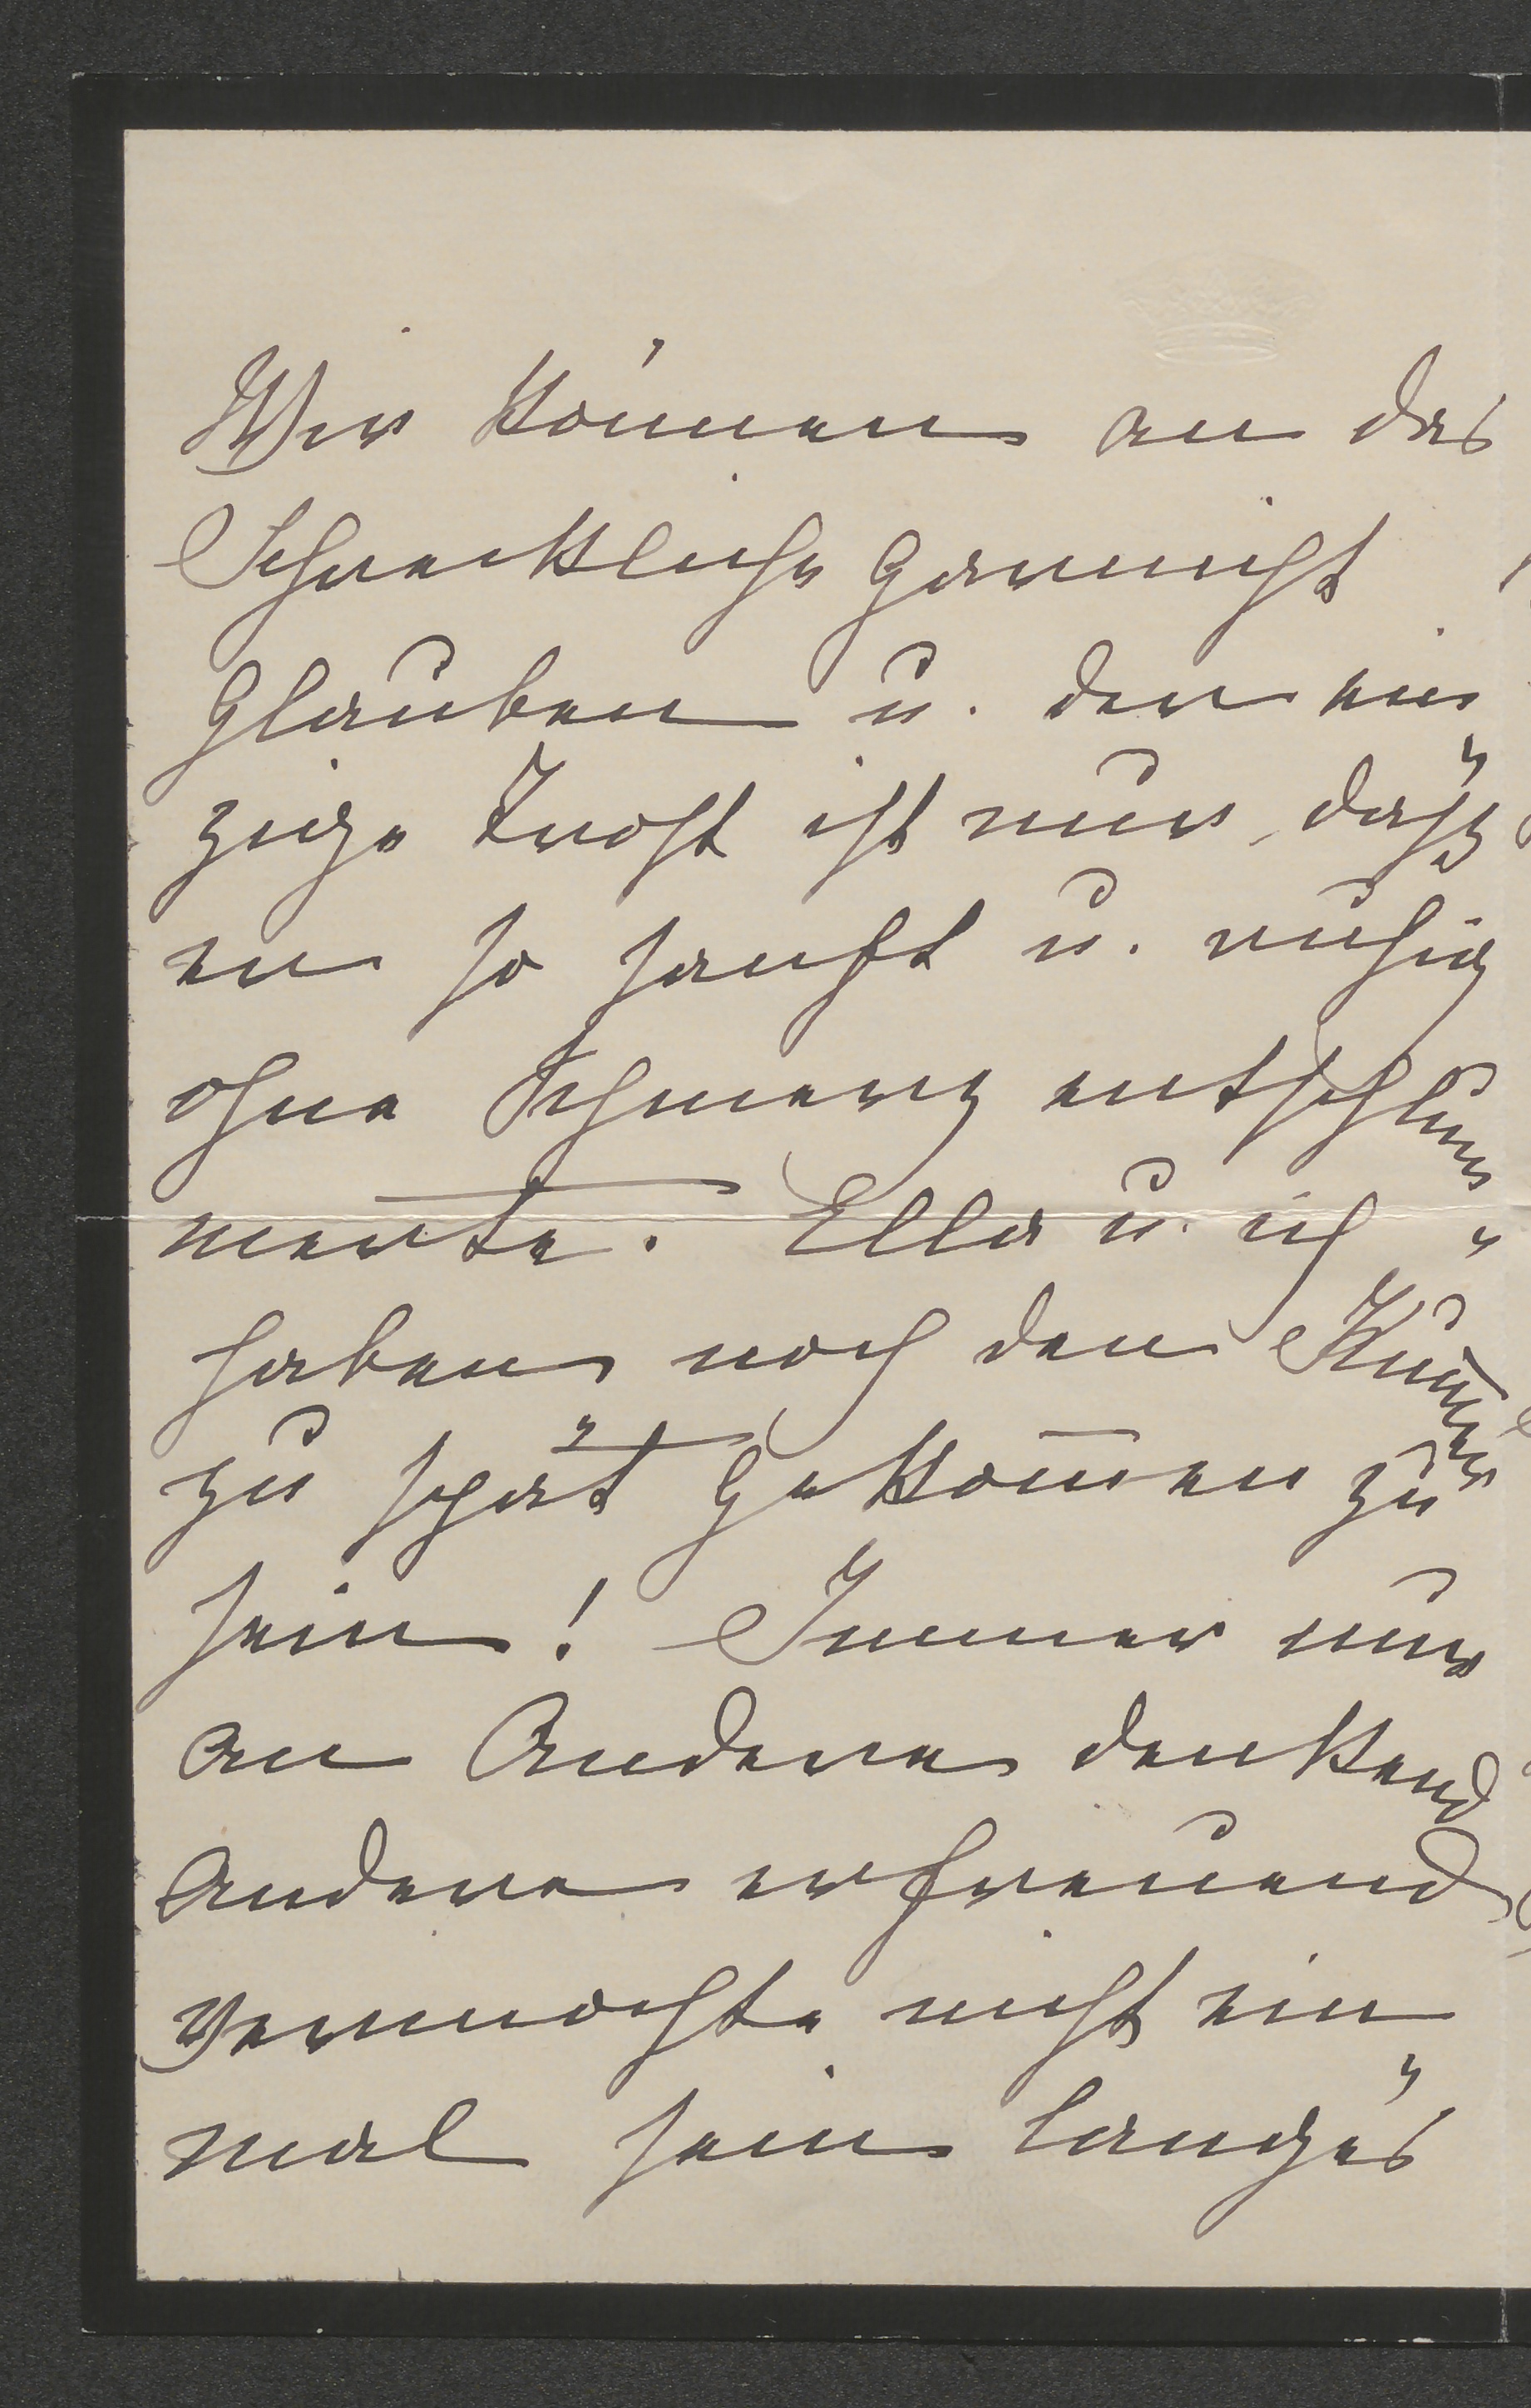 Wir können an das
Schreckliche garnicht
glauben u. der ein
zige Trost ist nur, daß
er so sanft u. ruhig
ohne Schmerz entschlum
merte. Ella u. ich
haben noch den Kum̅er
zu spät gekom̅en zu
sein! Immer nur
an Andere denkend
Andere erfreuend
vermochte nicht ein
mal sein langes